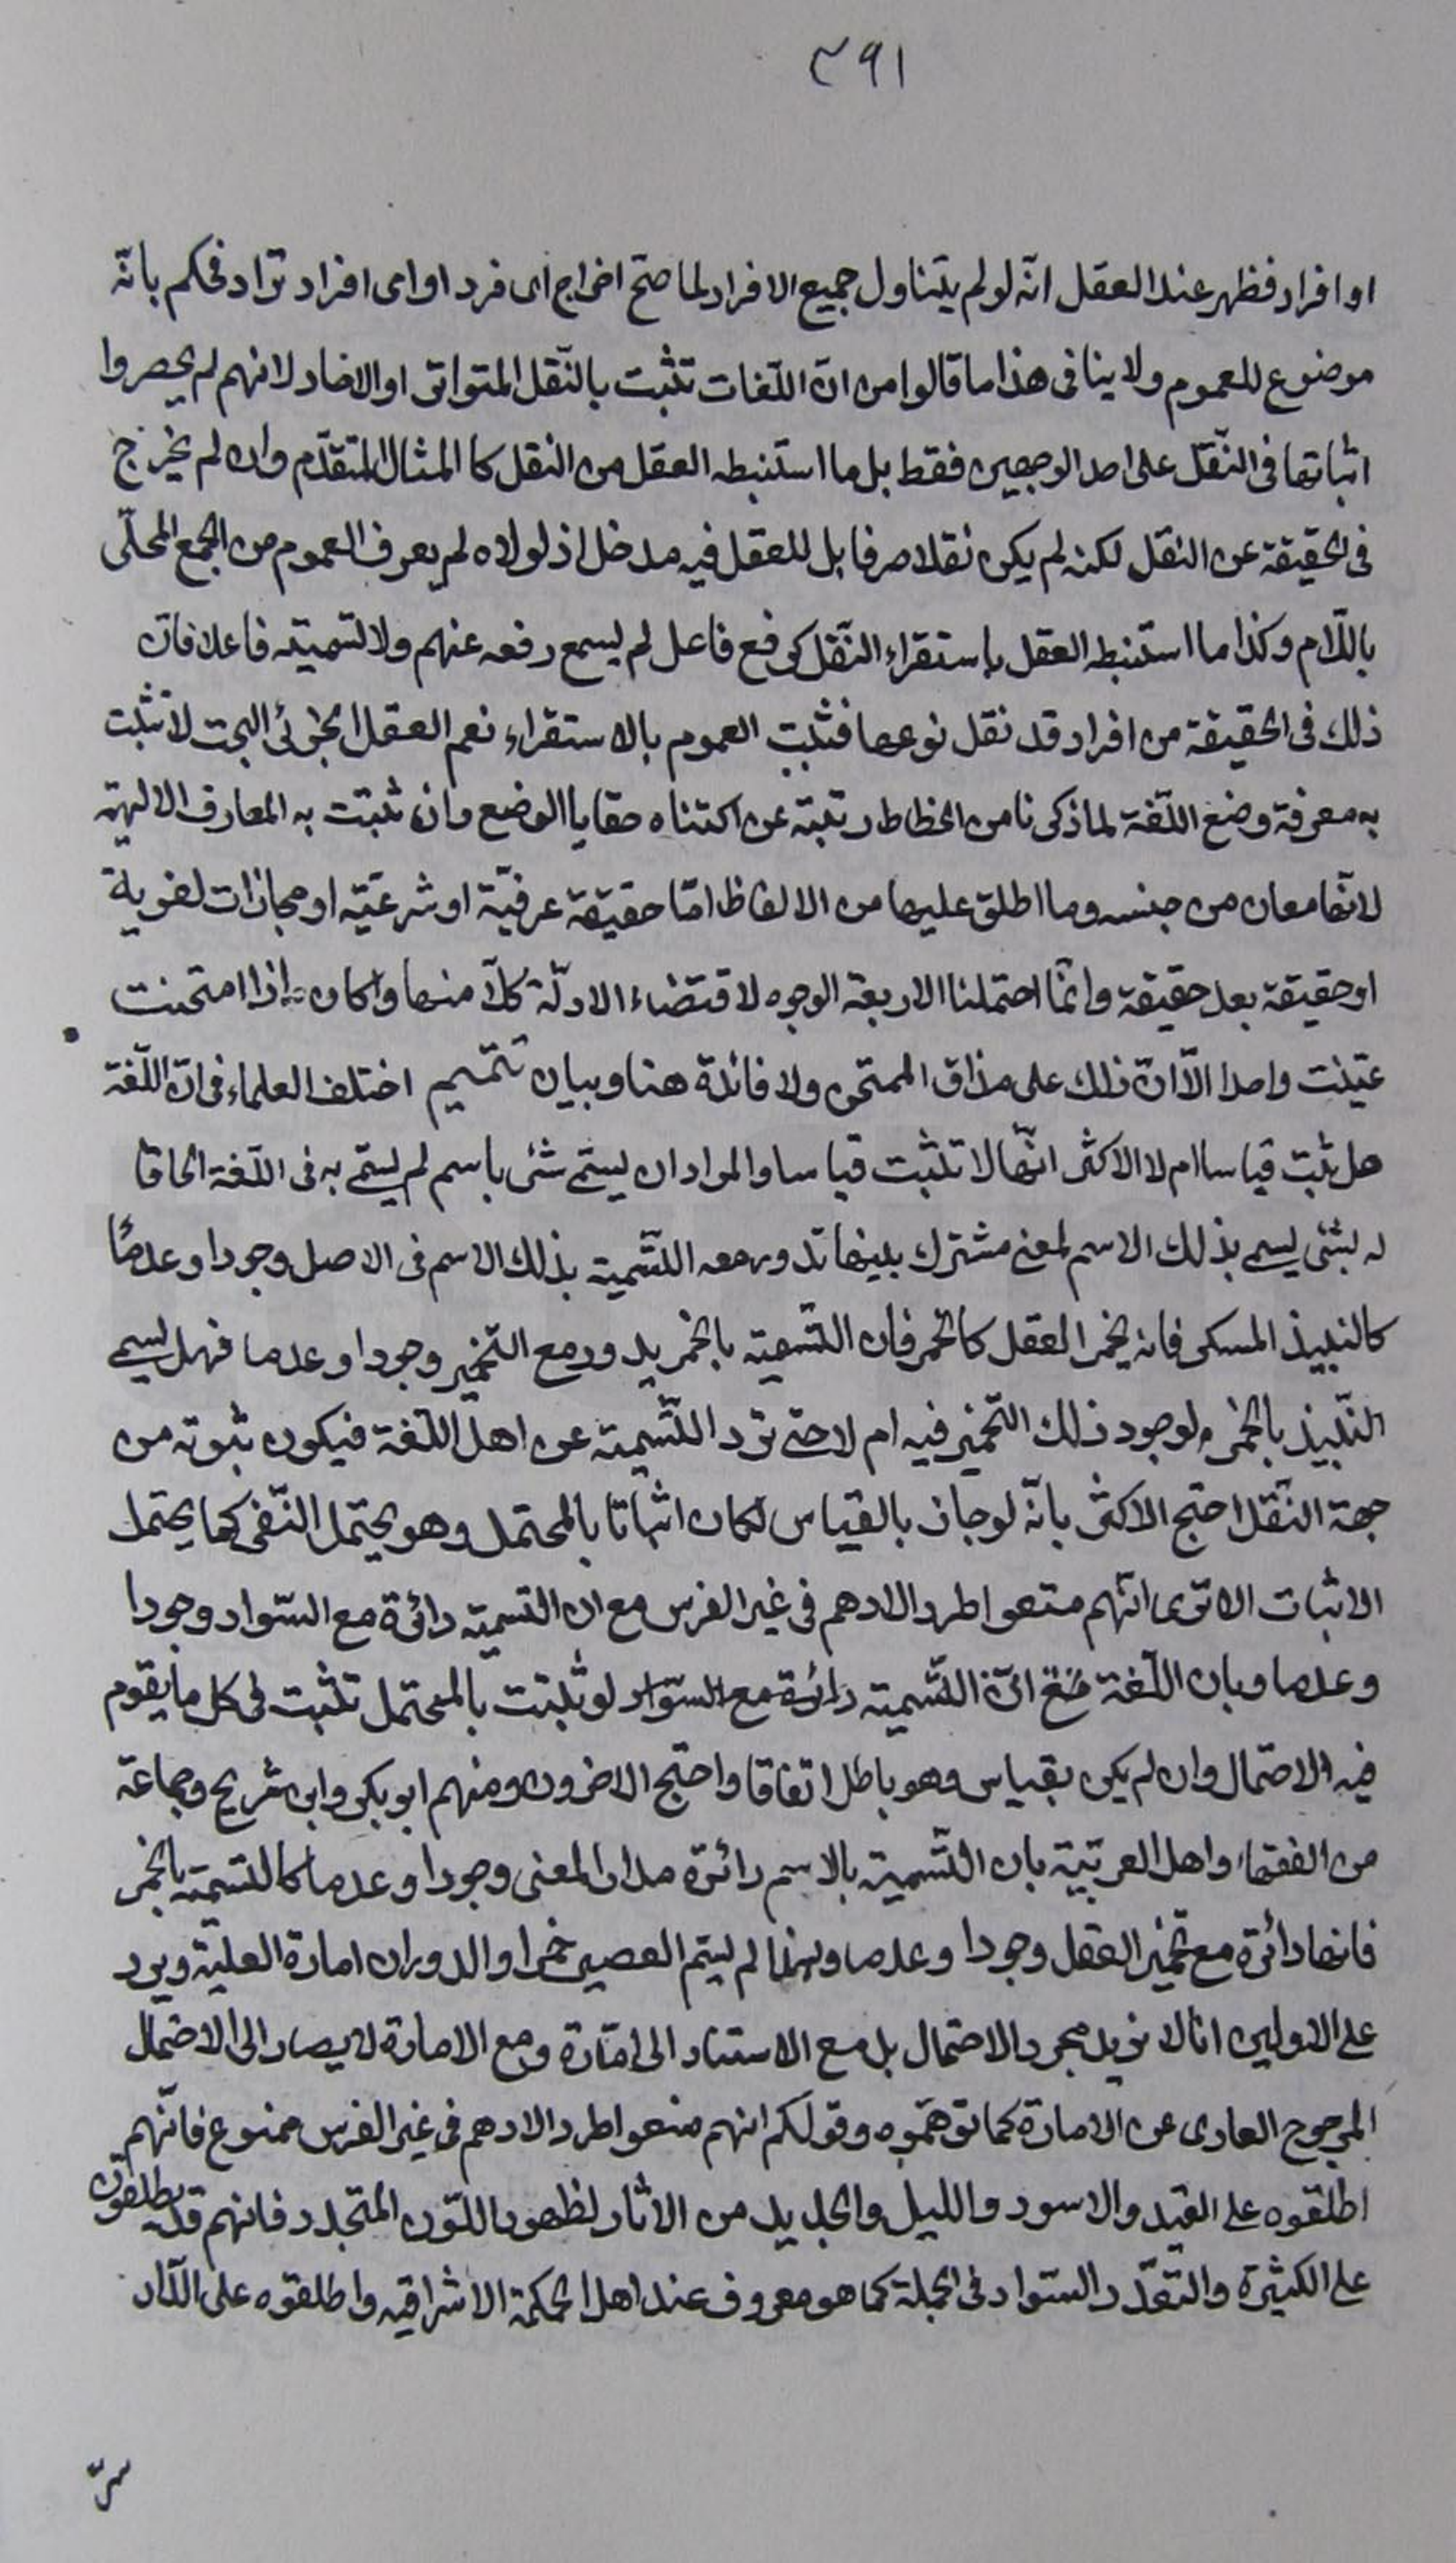 ٣٩١
او افراد فظهر عند العقل انّه لو لم يتناول جميع الافراد لما صحّ اخراج اى فرد او اى افراد تراد فحكم بانّه
موضوع للعموم ولا ينافى هذا ما قالوا من انّ اللّغات تثبت بالنّقل المتواتر او الاحاد لانهم لم يحصروا
اثباتها فى النّقل على احد الوجهين فقط بل ما استنبطه العقل من النقل كا المثال المتقدّم وان لم يخرج
فى الحقيقة عن النقل لكنه لم يكن نقلا صرفا بل للعقل فيه مدخل اذ لولاه لم يعرف العموم من الجمع المحلّى
باللّام وكذا ما استنبطه العقل باستقراء النّقل كرفع فاعل لم يسمع رفعه عنهم ولا تسميته فاعلا فانّ
ذلك فى الحقيقة من افراد قد نقل نوعها فثبت العموم بالاستقراء نعم العقل الجزئى البحت لا تثبت
به معرفة وضع اللّغة لما ذكرنا من انحطاط رتبته عن اكتناه خفايا الوضع وان ثبتت به المعارف الالهيّة
لانّها معان من جنسه وما اطلق عليها من الالفاظ امّا حقيقة عرفيّة او شرعيّه او مجازات لغوية
او حقيقة بعد حقيقة وانّما احتملنا الاربعة الوجوه لاقتضاء الادلّة كلّا منها واكان اذا امتحنت
عيّنت واحدا الّا انّ ذلك على مذاق الممتحن ولا فائدة هنا وبيان تتميم اختلف العلماء فى انّ اللّغة
هل تثبت قياسا ام لا الاكثر انّها لا تثبت قياسا والمراد ان يسمّى شئ باسم لم يسمّ به فى اللّغة الحاقا
له بشئ يسمى بذلك الاسم لمعنى مشترك بينهما تدور معه التّسمية بذلك الاسم فى الاصل وجودا وعدمًا
كالنبيذ المسكر فانه يخمر العقل كالخمر فان التّسمية بالخمر يدور مع التّخمير وجودا وعدما فهل يسمى
النّبيذ بالخمر لوجود ذلك التّخمير فيه ام لا حتى ترد التّسمية عن اهل اللّغة فيكون ثبوته من
جهة النّقل احتج الاكثر بانّه لو جاز بالقياس لكان اثباتا بالمحتمل وهو يحتمل النّفى كما يحتمل
الاثبات الا ترى انّهم منعوا طرد الادهم فى غير الفرس مع ان التسمية دائرة مع السّواد وجودا
وعدما وبان اللّغة التّسمية دائرة مع السّواد لو ثبتت بالمحتمل تثبت فى كل ما يقوم
فيه الاحتمال وان لم يكن بقياس وهو باطل اتفاقا واحتج الاخرون ومنهم ابو بكر وابن شريح وجماعة
من الفقهاء واهل العربيّة بان التّسمية بالاسم دائرة مدار المعنى وجودا وعدما كالتسمية بالخمر
فانها دائرة مع تخمير العقل وجودا وعدما ولهذا لم يسمّ العصير خمرا والدوران امارة العليّة ويرد
على الاولين انا لا نريد مجرد الاحتمال بل مع الاستناد الى امارة ومع الامارة لا يصار الى الاحتمال
المرجوح العارى عن الامارة كما توهّموه وقولكم انهم منعوا طرد الادهم فى غير الفرس ممنوع فانّهم
اطلقوه على القيد والاسود والليل والجديد من الاثار لظهور اللّون المتجدد فانهم قد يطلقون
على الكثيرة والتعدّد السّواد فى الجملة كما هو معروف عند اهل الحكمة الاشراقيه واطلقوه على الدّار